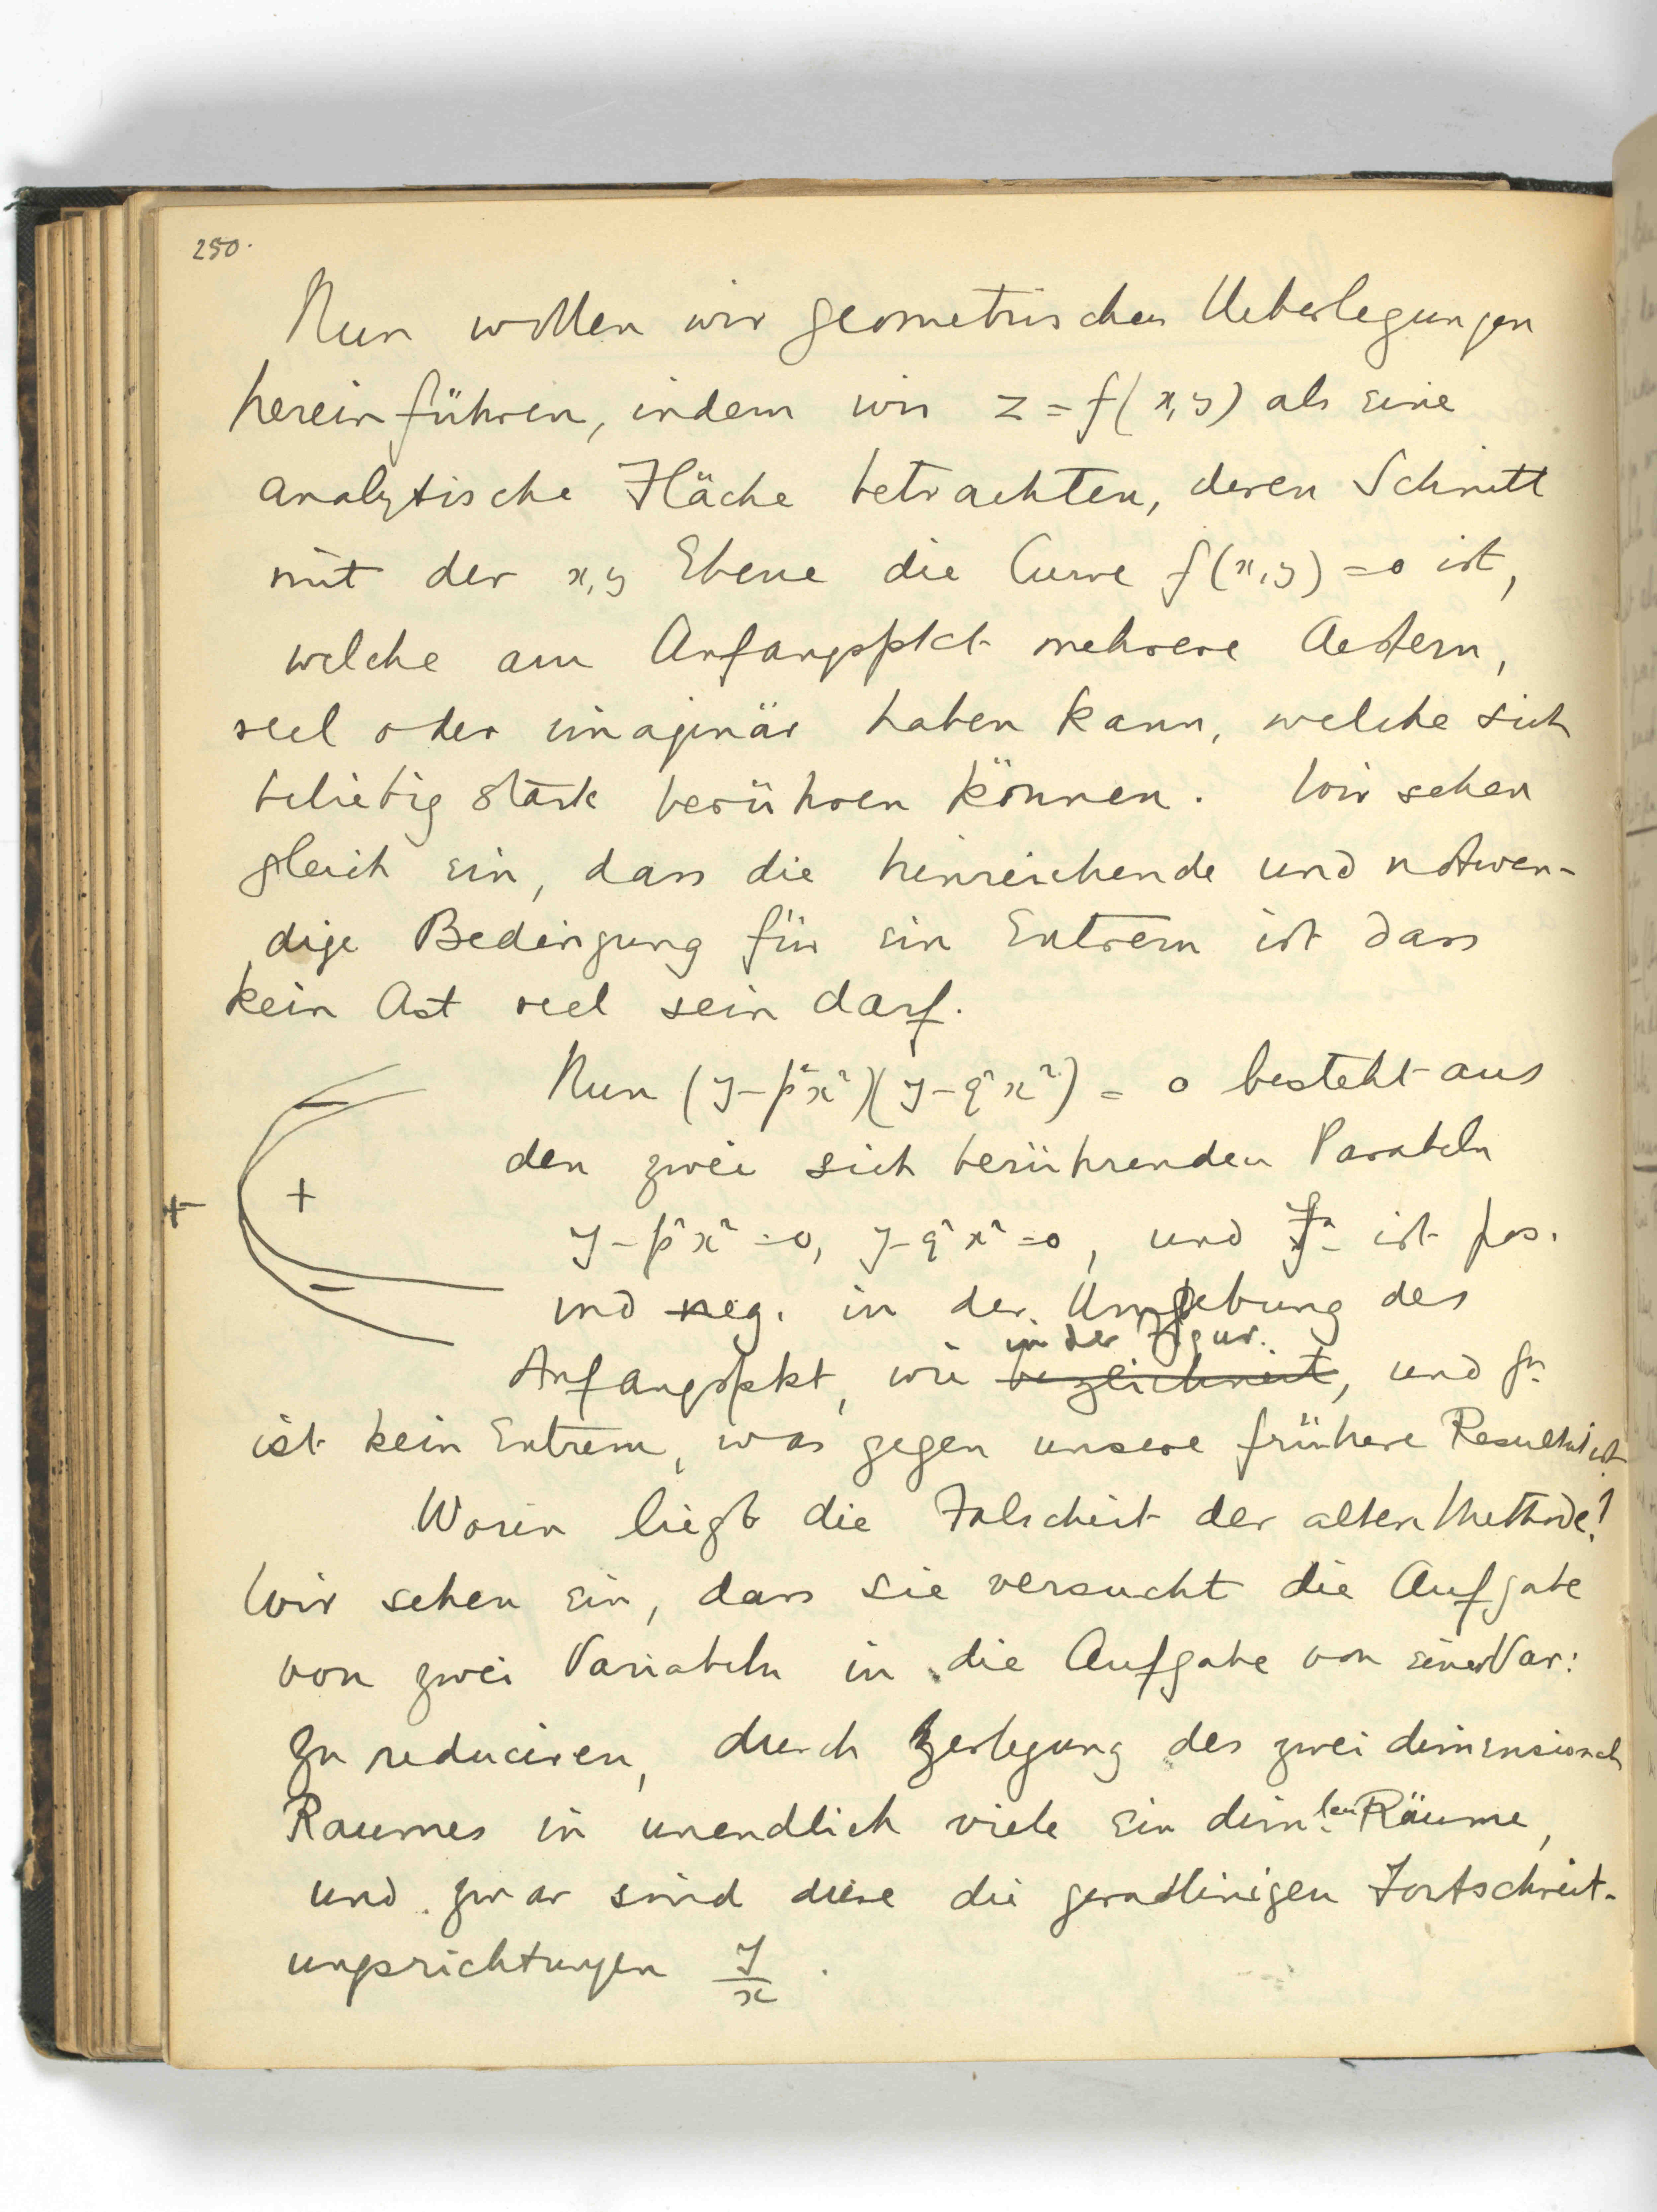 250.
Nun wollen wir geometrischen Ueberlegungen
hereinführen, indem wir z = f(x,y) als eine
analytische Fläche betrachten, deren Schnitt
mit der x,y Ebene die Curve f(x,y) = 0 ist,
welche am Anfangspkt mehrere Aestern,
reel oder imaginär haben kann, welche sich
beliebig stark berühren können. Wir sehen
gleich ein, dass die hinreichende und notwen-
dige Bedingung für ein Extrem ist dass
kein Ast reel sein darf.
Nun (y-p²x²)(y-q²x²) = 0 besteht aus
den zwei sich berührenden Parabeln
y-p²x²=0, y-q²x²=0, und ist pos.
und neg. in der Umgebung des
in der Figur.
Anfangspkt, wie bezeichnet, und fn
ist kein Extrem, was gegen unsere frühere Resultat ist.
Worin liegt die Falscheit der alten Methode?
Wir sehen ein, dass sie versucht die Aufgabe
von zwei Variabeln in die Aufgabe von einer Var:
zu reduciren, durch Zerlegung des zwei dimensional
Raumes in unendlich viele ein dim.len Räume,
und zwar sind diese die geradlinigen Fortschreit-
ungsrichtungen y/x.
−
+
+
−